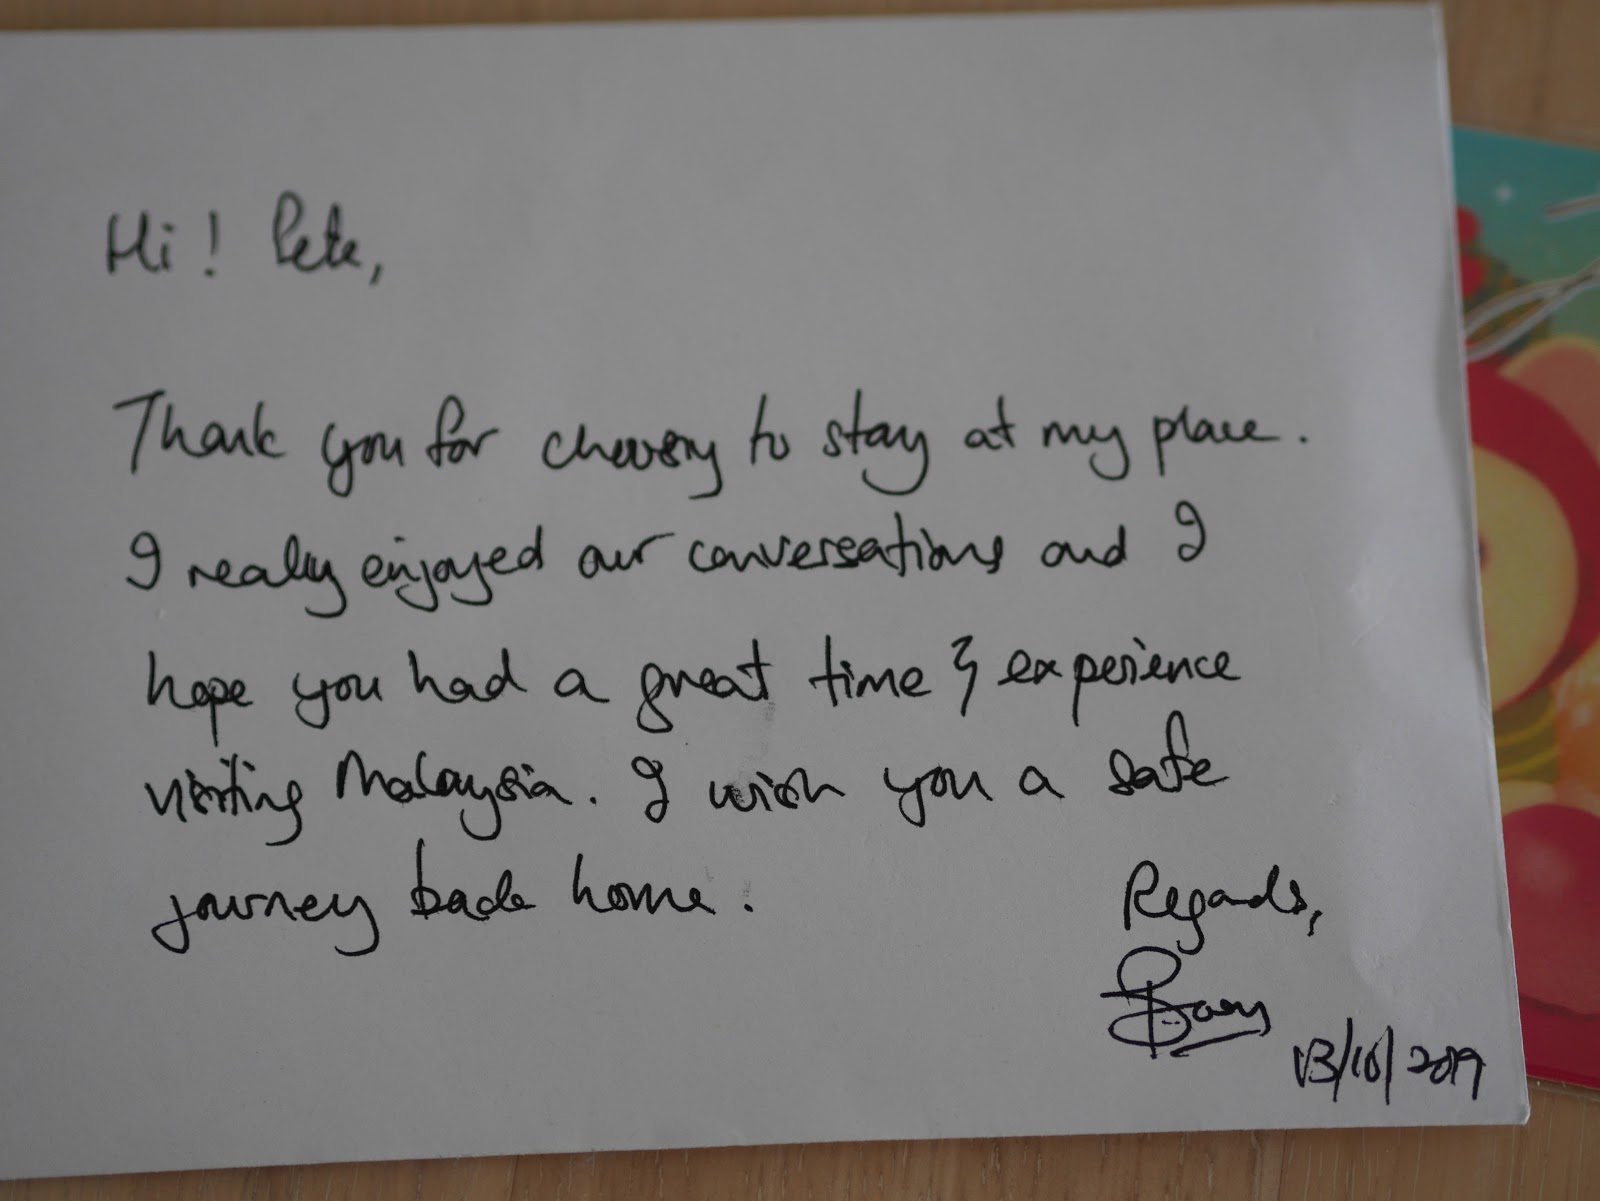 Hi! Pete,
Thank you for choosing to stay at my place.
I really enjoyed our conversations and I
hope you had a great time & experience
visiting Malaysia. I wish you a safe
journey back home.
Regards,
13/10/2019